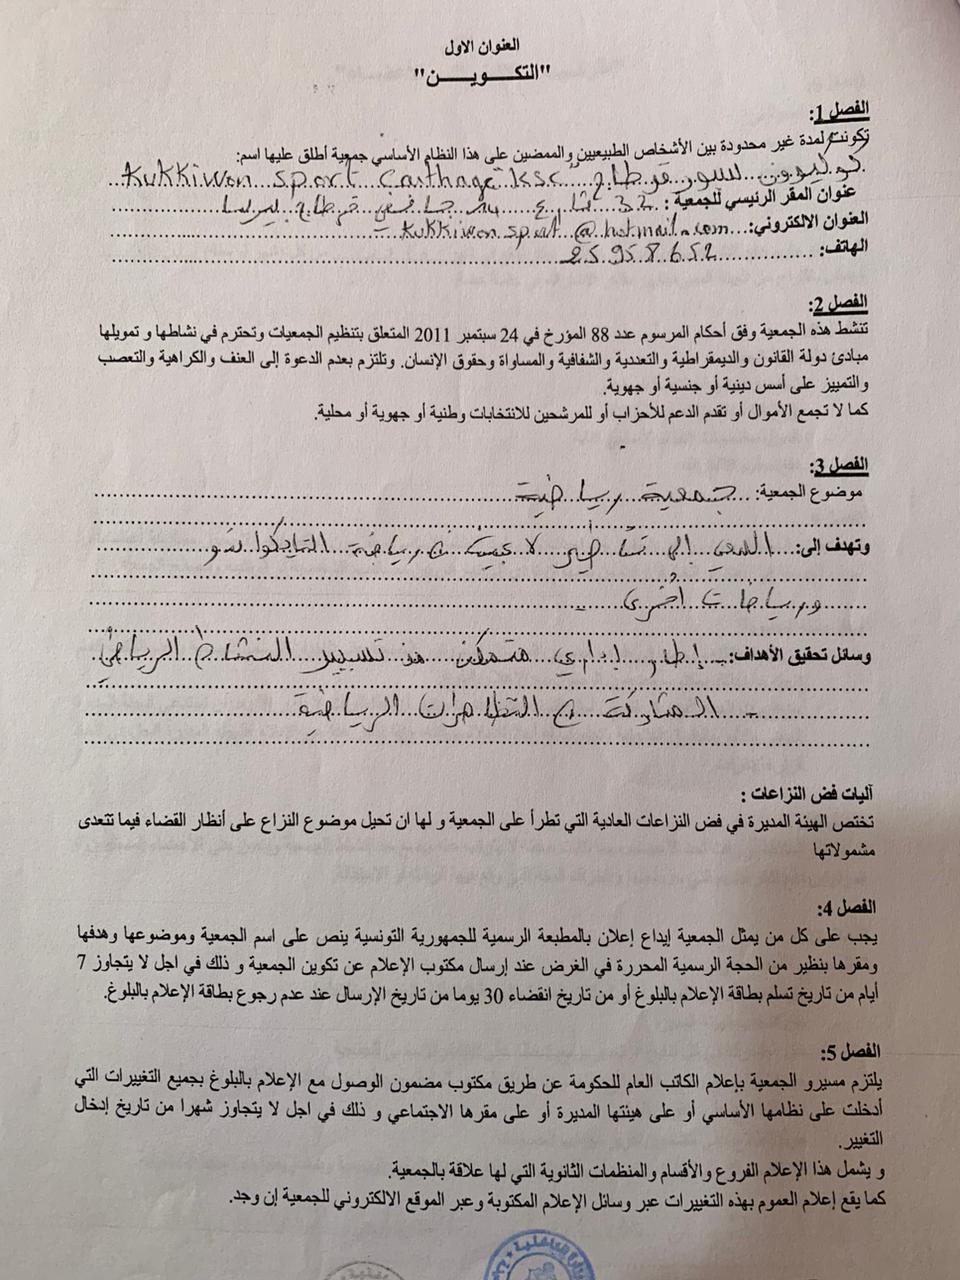 العنوان الاول
"التكويـــــن"
الفصل 1:
تكونت لمدة غير محدودة بين الأشخاص الطبيعيين والممضين على هذا النظام الأساسي جمعية أطلق عليها اسم:
كوكيوون سبور قرطاج "Kukkiwon sport Carthage "KSC
عنوان المقر الرئيسي للجمعية : 32 شارع قرطاج بيرسا
العنوان الالكتروني: kukkiwon.sport@hotmail.com
الهاتف: 25958652
الفصل 2:
تنشط هذه الجمعية وفق أحكام المرسوم عدد 88 المؤرخ في 24 سبتمبر 2011 المتعلق بتنظيم الجمعيات وتحترم في نشاطها و تمويلها
مبادئ دولة القانون والديمقراطية والتعددية والشفافية والمساواة وحقوق الإنسان. وتلتزم بعدم الدعوة إلى العنف والكراهية والتعصب
والتمييز على أسس دينية أو جنسية أو جهوية.
كما لا تجمع الأموال أو تقدم الدعم للأحزاب أو للمرشحين للانتخابات وطنية أو جهوية أو محلية.
الفصل 3:
موضوع الجمعية: جمعية رياضية
وتهدف إلى: السعي إلى لاعبين في رياضة التايكواندو
ورياضات أخرى
وسائل تحقيق الأهداف: - إطار إداري متمكن من تسيير النشاط الرياضي
- المشاركة في التظاهرات الرياضية
آليات فض النزاعات :
تختص الهيئة المديرة في فض النزاعات العادية التي تطرأ على الجمعية و لها ان تحيل موضوع النزاع على أنظار القضاء فيما تتعدى
مشمولاتها
الفصل 4:
يجب على كل من يمثل الجمعية إيداع إعلان بالمطبعة الرسمية للجمهورية التونسية ينص على اسم الجمعية وموضوعها وهدفها
ومقرها بنظير من الحجة الرسمية المحررة في الغرض عند إرسال مكتوب الإعلام عن تكوين الجمعية و ذلك في اجل لا يتجاوز 7
أيام من تاريخ تسلم بطاقة الإعلام بالبلوغ أو من تاريخ انقضاء 30 يوما من تاريخ الإرسال عند عدم رجوع بطاقة الإعلام بالبلوغ.
الفصل 5:
يلتزم مسيرو الجمعية بإعلام الكاتب العام للحكومة عن طريق مكتوب مضمون الوصول مع الإعلام بالبلوغ بجميع التغييرات التي
أدخلت على نظامها الأساسي أو على هيئتها المديرة أو على مقرها الاجتماعي و ذلك في اجل لا يتجاوز شهرا من تاريخ إدخال
التغيير.
و يشمل هذا الإعلام الفروع والأقسام والمنظمات الثانوية التي لها علاقة بالجمعية.
كما يقع إعلام العموم بهذه التغييرات عبر وسائل الإعلام المكتوبة وعبر الموقع الالكتروني للجمعية إن وجد.